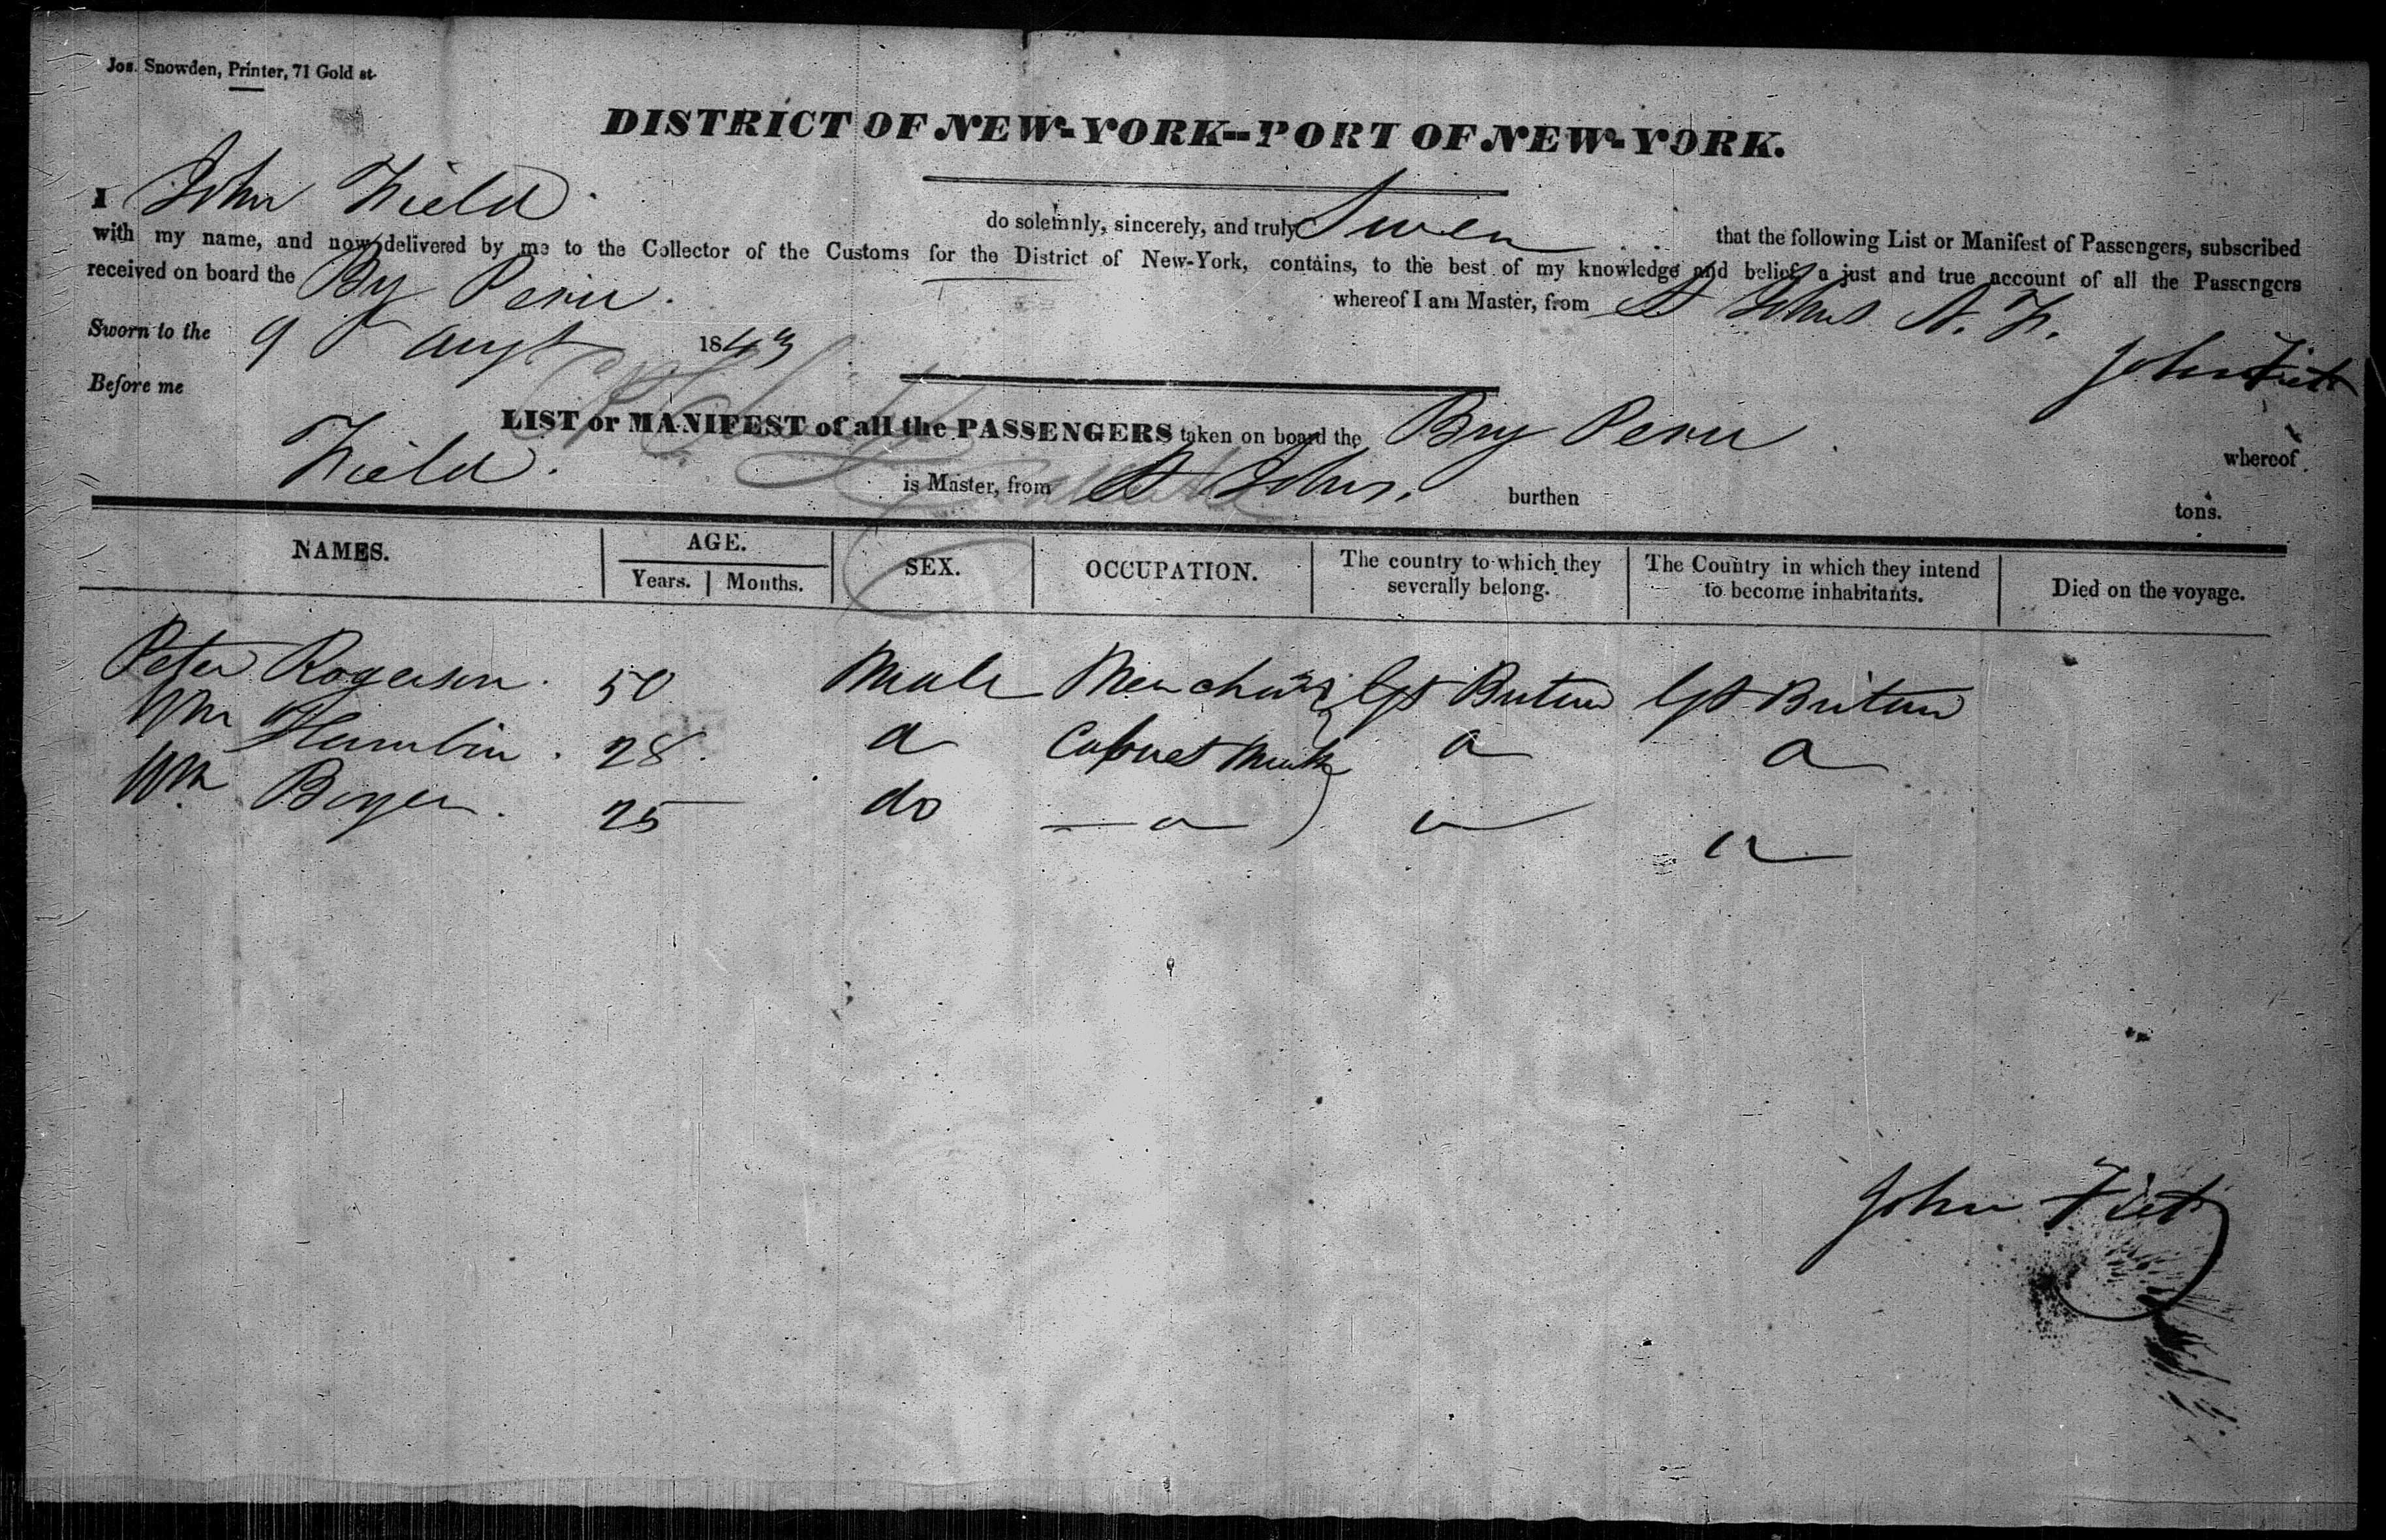 Jos. Snowden, Printer, 71 Gold st.
DISTRICT OF NEW-YORK--PORT OF NEW-YORK.
I John Field do solemnly, sincerely, and truly Swear that the following List or Manifest of Passengers, subscribed
with my name, and now delivered by me to the Collector of the Customs for the District of New-York, contains, to the best of my knowledge and belief, a just and true account of all the Passengers
received on board the Brig Peru. whereof I am Master, from St Johns N. F.
Sworn to the 9 Augt 1843
Before me John
LIST or MANIFEST of all the PASSENGERS taken on board the Brig Peru whereof
Field. is Master, from St Johns. burthen tons.
NAMES. AGE. SEX. OCCUPATION. The country to which they severally belong. The Country in which they intend to become inhabitants. Died on the voyage.
Years. Months.
Peter Rogerson. 50 Male Merchant Gt Britain Gt Britain
Wm Hamlin. 28. do Cabinet do do
Wm 25 do do do do
John